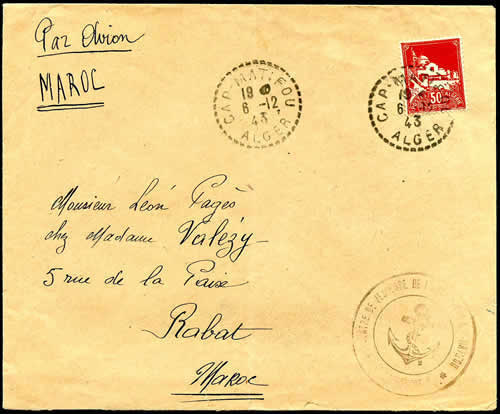 Par Avion
MAROC
CAP-MATIFOU
19
6 -12
43
ALGER
CAP-MATIFOU
19
6
43
ALGER
50
Monsieur Léon Pagès
chez Madame Valézy
5 rue de la Paix
Rabat
Maroc